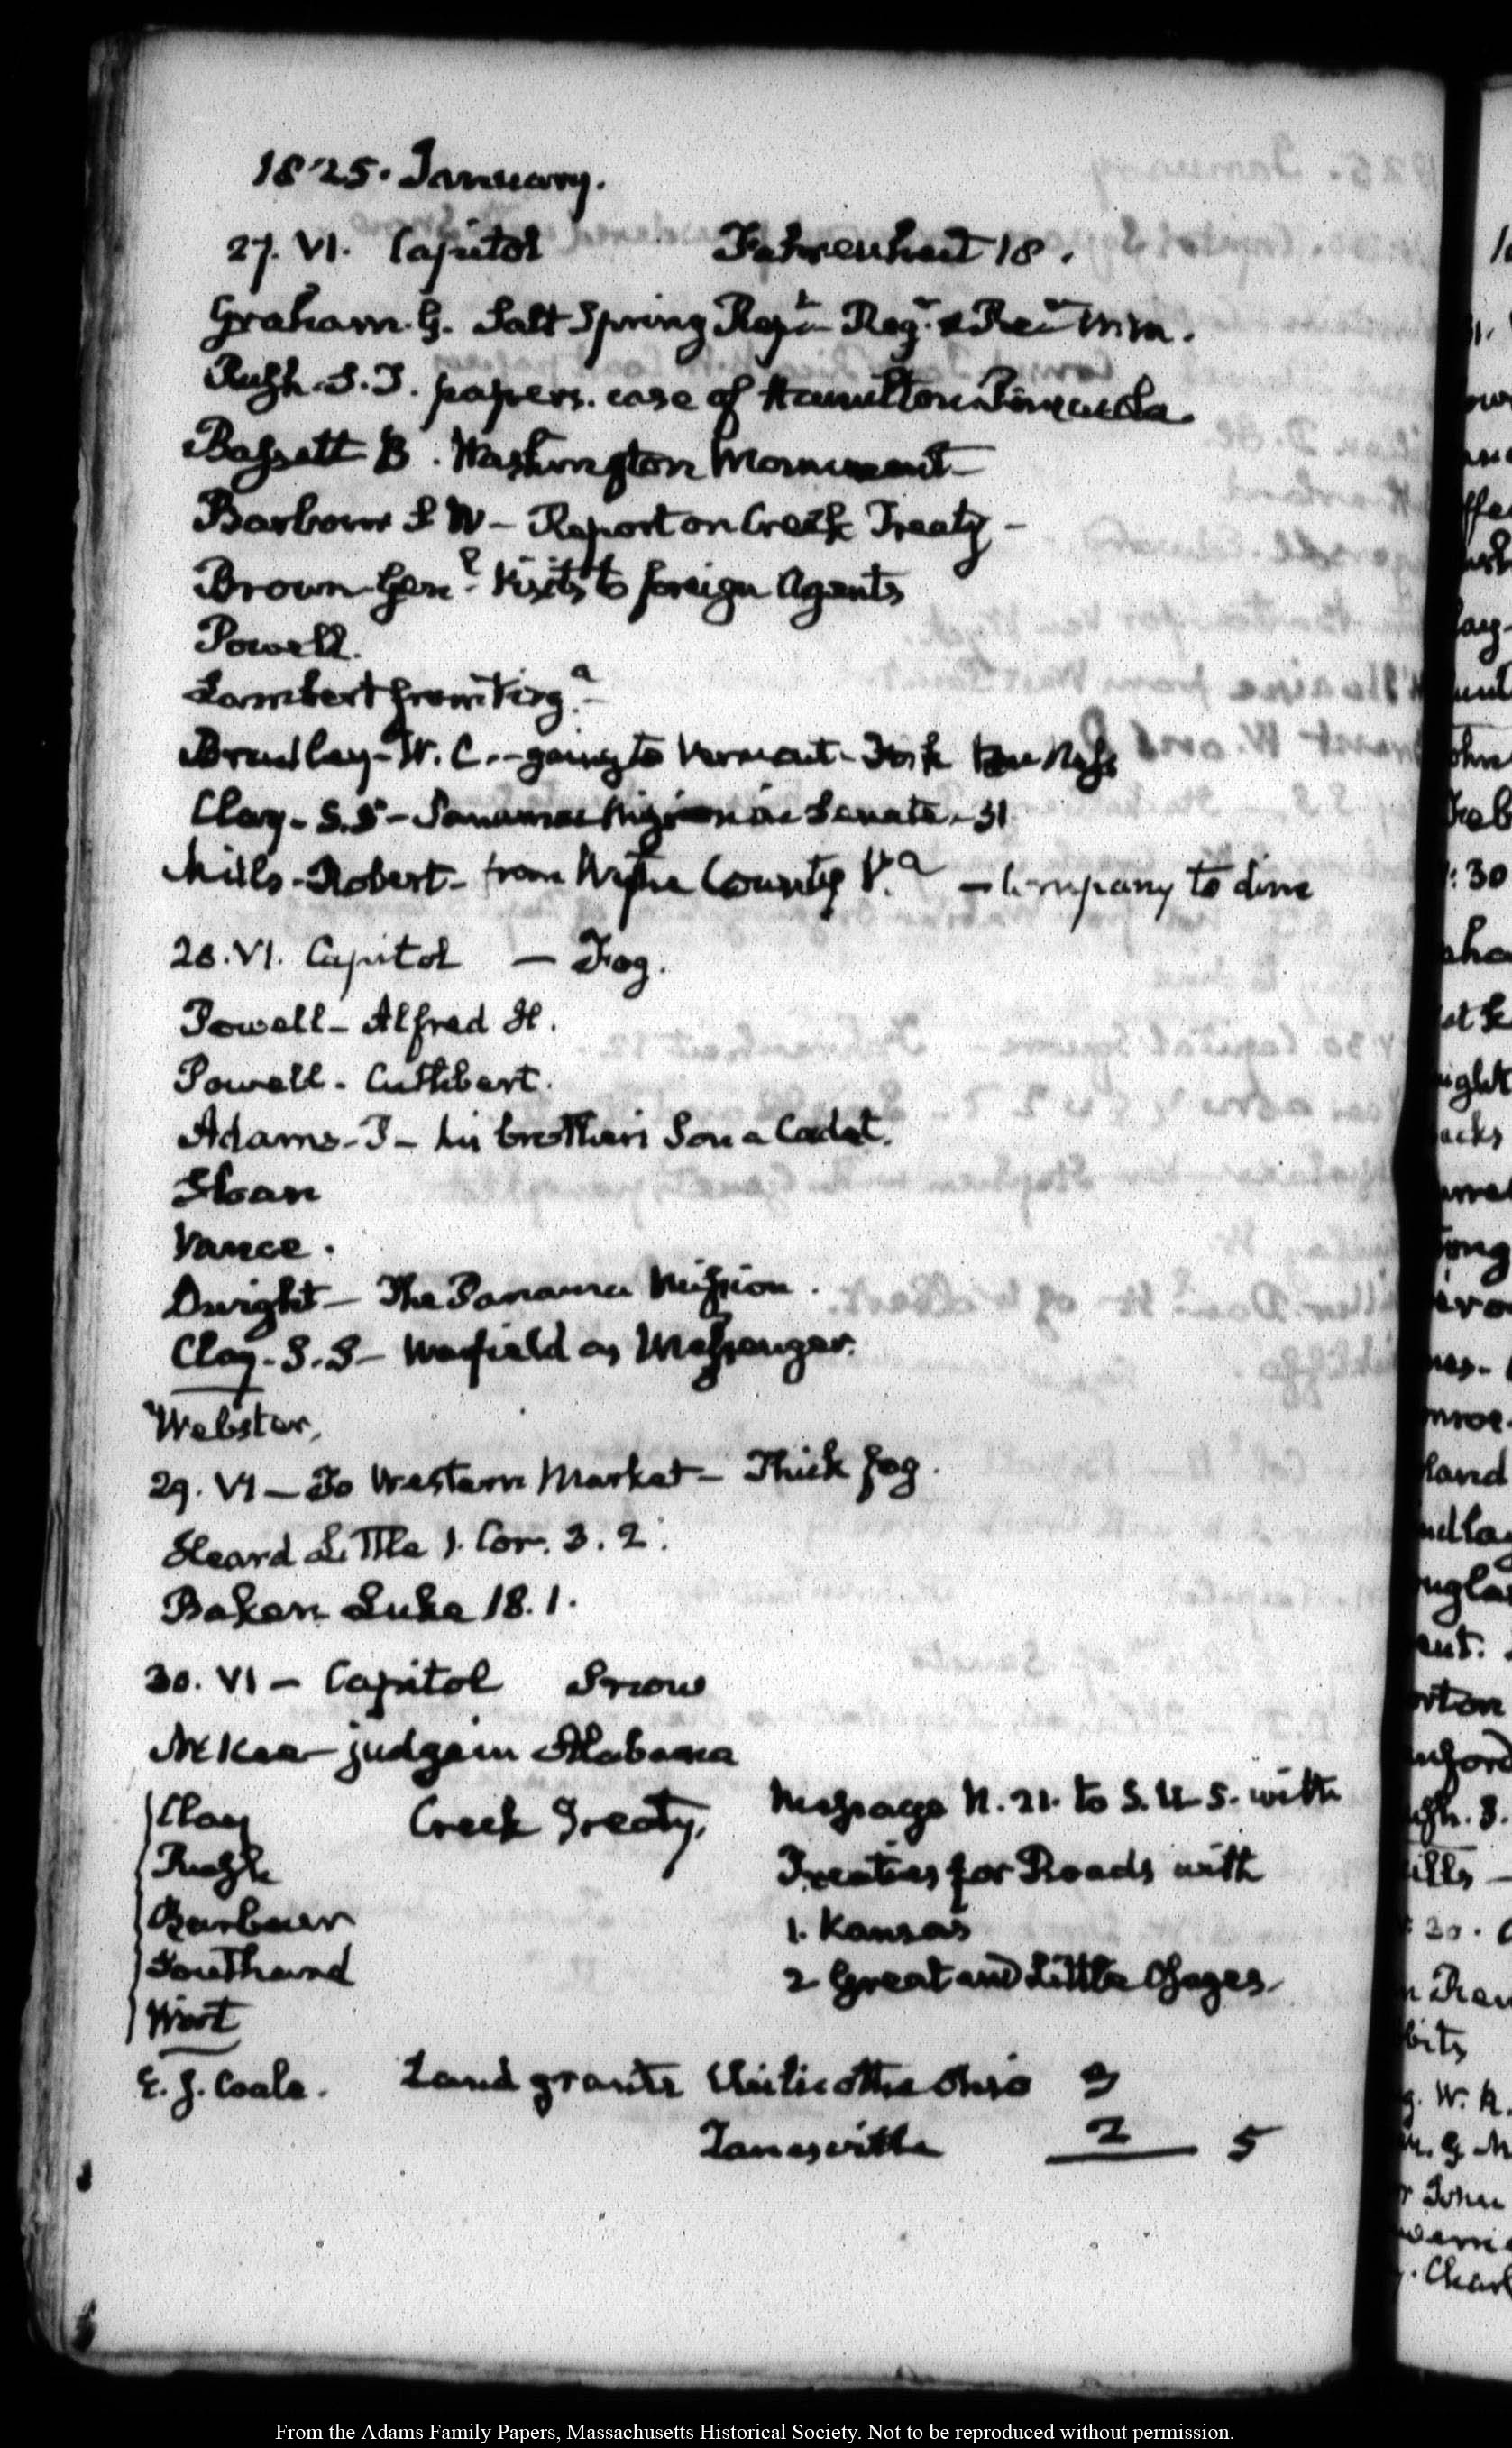 1825. January.
27. VI. Capitol Fahrenheit 18.
Graham. G. Salt Spring Reg.r & Rec.r
Rush. S.T. papers. case of Hamilton
Bassett B. Washington Monument—
Barbour S W— Report on Creek Treaty—
Brown Gen.l Visits to foreign Agents
Powell.
Lambert from Virg.a
Bradley—W. C.—going to Vermont—
Clay—S.S—Panama Mission in Senate—31
Mills—Robert—from Wythe County V.a — Company to dine
28. VI. Capitol — Fog.
Powell—Alfred H.
Powell—Cuthbert.
Adams—P— his brother's Son a Cadet.
Sloan
Vance.
Dwight—The Panama Mission.
Clay—S.S— Warfield as Messenger.
Webster,
29. VI—To Western Market—Thick fog.
Heard Little 1. Cor. 3. 2.
Baker Luke 18. 1.
30. VI—Capitol Snow
McKee—judge in Alabama
Clay Creek Treaty, Message N. 21. to S. U S. with
Rush Treaties for Roads with
Barbour 1. Kansas
Southard 2 Great and Little Osages
Wirt
E. J. Coale. Land grants Chilicothe Ohio 3
Zanesville 2 5
From the Adams Family Papers, Massachusetts Historical Society. Not to be reproduced without permission.